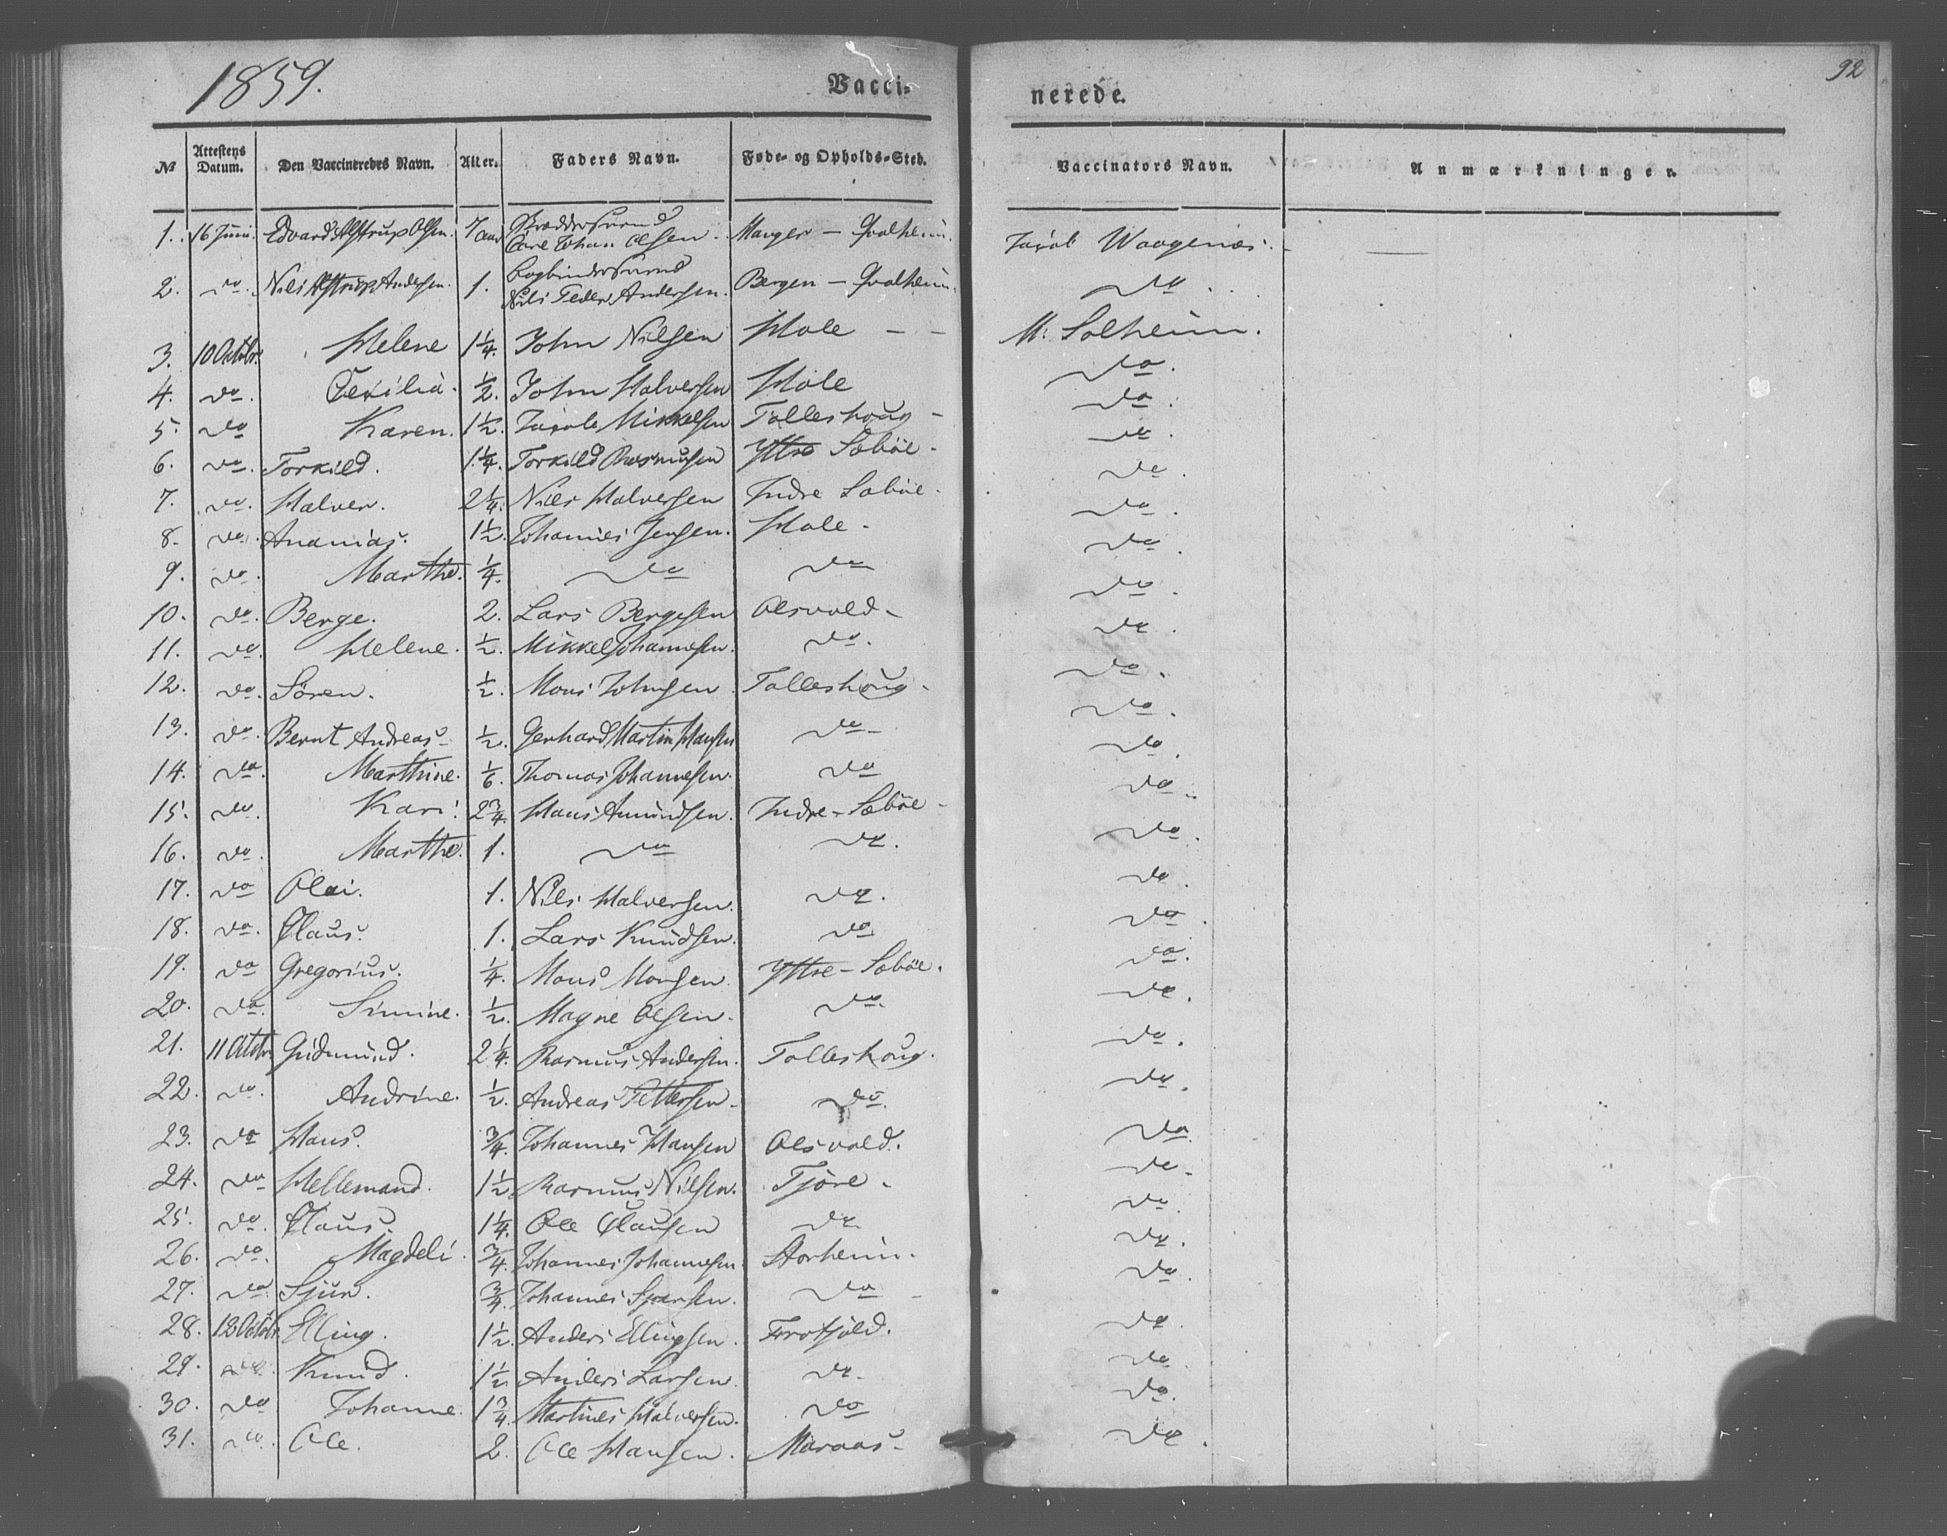 1859.
Vacci-
nerede.
92
№ Attestens Datum. Den Vaccineredes Navn. Alter. Faders Navn. Føde- og Opholds-Sted. Vaccinators Navn. Anmærkninger.
1. 16 Juni. Edvard Alstrup Olsen. 7 Skræddersvend Carl Johan Olsen. Manger — Qvalheim. Jacob Waagenæs.
2. do. Nils Alstrup Andersen. 1. Bogbindersvend Nils Peder Andersen. Bergen — Qvalheim. do
3. 10 Octobr. Helene 1 1/4. John Nilsen Hole — M. Solheim.
4. do. Cecilia. 1/2. John Halversen Hole do.
5. do Karen. 1 1/2. Jacob Mikkelsen Tolleshoug - do.
6. do. Torkild. 1 1/4. Torkild Rasmusen Yttre Sæbøe. do.
7. do. Halver. 2 1/4. Nils Halversen Indre Sæbøe. do.
8. do. Ananias. 1 1/2. Johannes Jensen. Hole. do.
9. do. Marthe. 1/4. do do do.
10. do. Berge. 2. Lars Bergesen Olsvold. do.
11. do. Helene. 1/2. Mikkel Johannesen. do. do.
12. do. Sören. 1/2. Mons Johnsen. Tolleshoug. do.
13. do. Bernt Andreas. 1/2. Gerhard Martin Hansen do do.
14. do. Marthine. 1/6. Thomas Johannesen. do do.
15. do. Kari. 2 3/4. Hans Amundsen. Indre - Sæbøe - do.
16. do. Marthe. 1. do do. do.
17. do Olai. 1. Nils Halversen. do. do.
18. do. Claus. 1. Lars Knudsen. do do.
19. do Gregorius. 1/4. Mons Monsen Yttre - Sæbøe. do.
20. do. Simine. 1/2. Magne Olsen. do. do.
21. 11 Octobr. Gudmund. 2 1/4. Rasmus Andersen. Tolleshoug. do.
22. do. Andrine. 1/2. Andreas Pettersen. do. do.
23. do Hans. 3/4. Johannes Hansen Olsvold. do
24. do Hellemand. 1 1/2 Rasmus Nilsen. Tjöre. do.
25. do. Claus. 1 1/4. Ole Clausen do. do.
26. do. Magdeli. 3/4. Johannes Johannesen. Storheim. do.
27. do. Sjur. 3/4. Johannes Sjursen. do do.
28. 12 Octobr. Elling. 1 1/2. Anders Ellingsen. do.
29. do. Knud. 1 1/2. Anders Larsen. do. do.
30. do Johanne. 1 3/4. Martines Halversen. do do.
31. do. Ole. 2. Ole Hansen. Maraas. do.